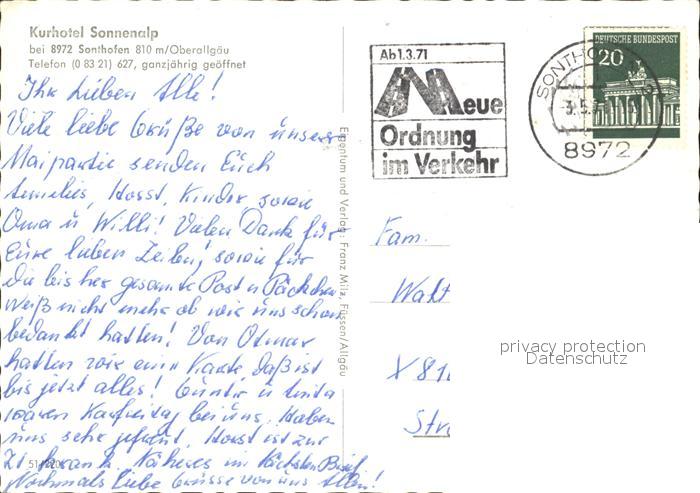 Kurhotel Sonnenalp
bei 8972 Sonthofen 810 m/Oberallgäu
Telefon (0 83 21) 627, ganzjährig geöffnet
Ihr Lieben Alle!
Viele liebe Grüße von unserer
Maipartie senden Euch
Annelies, Horst, Kinder, sowie
Oma u Willi! Vielen Dank für
Eure lieben Zeilen, sowie für
die bisher gesamte Post u Päckchen
Weiß nicht mehr ob wir uns schon
bedankt hatten! Von Otmar
hatten wir eine Karte daß ist
bis jetzt alles! Günter u Anita
waren Karfreitag bei uns, Haben
uns sehr gefreut, Horst ist zur
Zt krank. Näheres im Nächsten Brief
Nochmals liebe Grüsse von uns Allen!
Eigentum und Verlag: Franz Milz, Füssen/Allgäu
Ab 1.3.71
Neue
Ordnung
im Verkehr
SONTHOFEN
8972
DEUTSCHE BUNDESPOST
20
Fam.
Walt
X 81
Str
privacy protection
Datenschutz